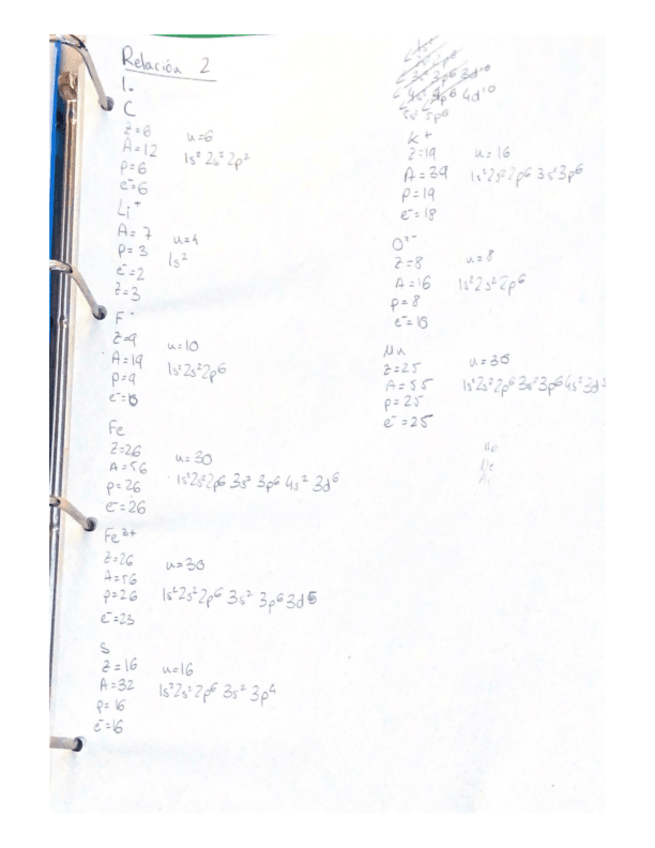 Relación 2
1.
C
Z=6
A=12
p=6
e⁻=6
n=6
1s² 2s² 2p²
Li⁺
A=7
p=3
e⁻=2
Z=3
n=4
1s²
F⁻
Z=9
A=19
p=9
e⁻=10
n=10
1s² 2s² 2p⁶
Fe
Z=26
A=56
p=26
e⁻=26
n=30
1s² 2s² 2p⁶ 3s² 3p⁶ 4s² 3d⁶
Z=26
A=56
p=26
e⁻=23
n=30
1s² 2s² 2p⁶ 3s² 3p⁶ 3d⁵
S
Z=16
A=32
p=16
e⁻=16
n=16
1s² 2s² 2p⁶ 3s² 3p⁴
5s² 5p⁶
K⁺
Z=19
A=39
p=19
e⁻=18
n=16
1s² 2s² 2p⁶ 3s² 3p⁶
O²⁻
Z=8
A=16
p=8
e⁻=10
n=8
1s² 2s² 2p⁶
Mn
Z=25
A=55
p=25
e⁻=25
n=30
1s² 2s² 2p⁶ 3s² 3p⁶ 4s² 3d⁵